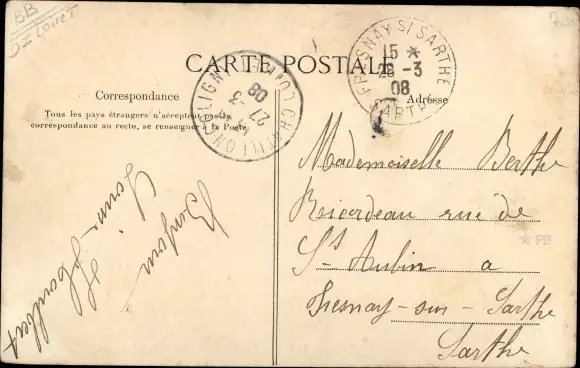 BB
D= Loiret
CARTE POSTALE
Correspondance
Tous les pays étrangers n'acceptent pas la
correspondance au recto, se renseigner à la Poste
Bonjour
Louis
CHATILLON-COLIGNY LOIRET
27 -3
08
FRESNAY S/ SARTHE
15 *
28 -3
08
SARTHE
Adresse
Mademoiselle Berthe
Ricordeau rue de
St Aubin a
Fresnay-sur-Sarthe
Sarthe
PB